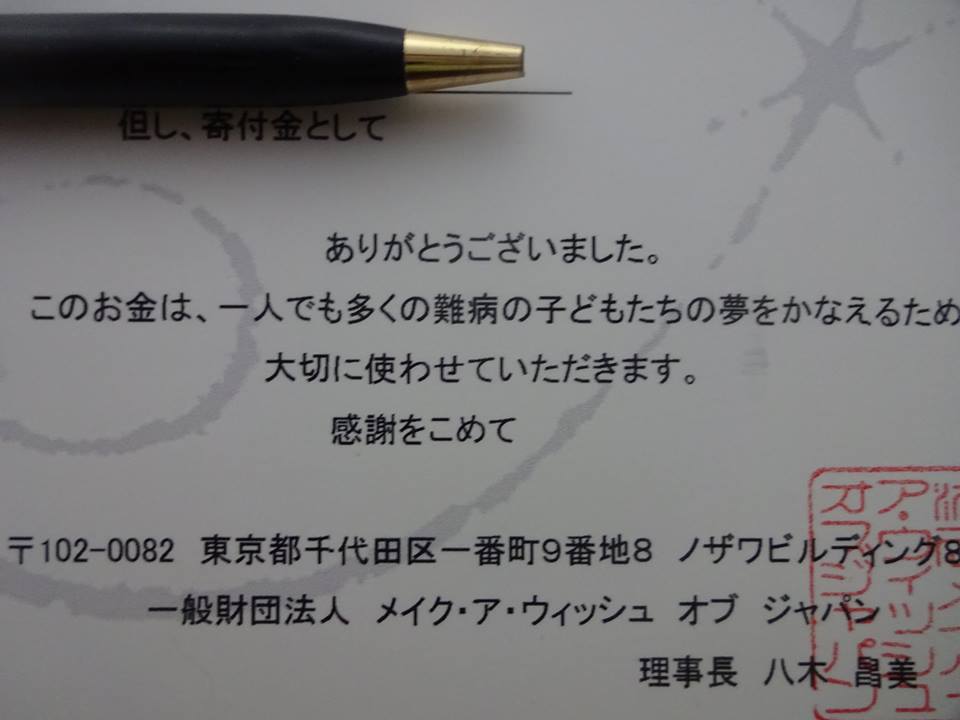 但し、寄付金として
ありがとうございました。
このお金は、一人でも多くの難病の子どもたちの夢をかなえるため
大切に使わせていただきます。
感謝をこめて
〒102-0082 東京都千代田区一番町9番地8 ノザワビルディング8
一般財団法人 メイク・ア・ウィッシュ オブ ジャパン
理事長 八木 昌美
ア・ウィッシュ
オブジャパン